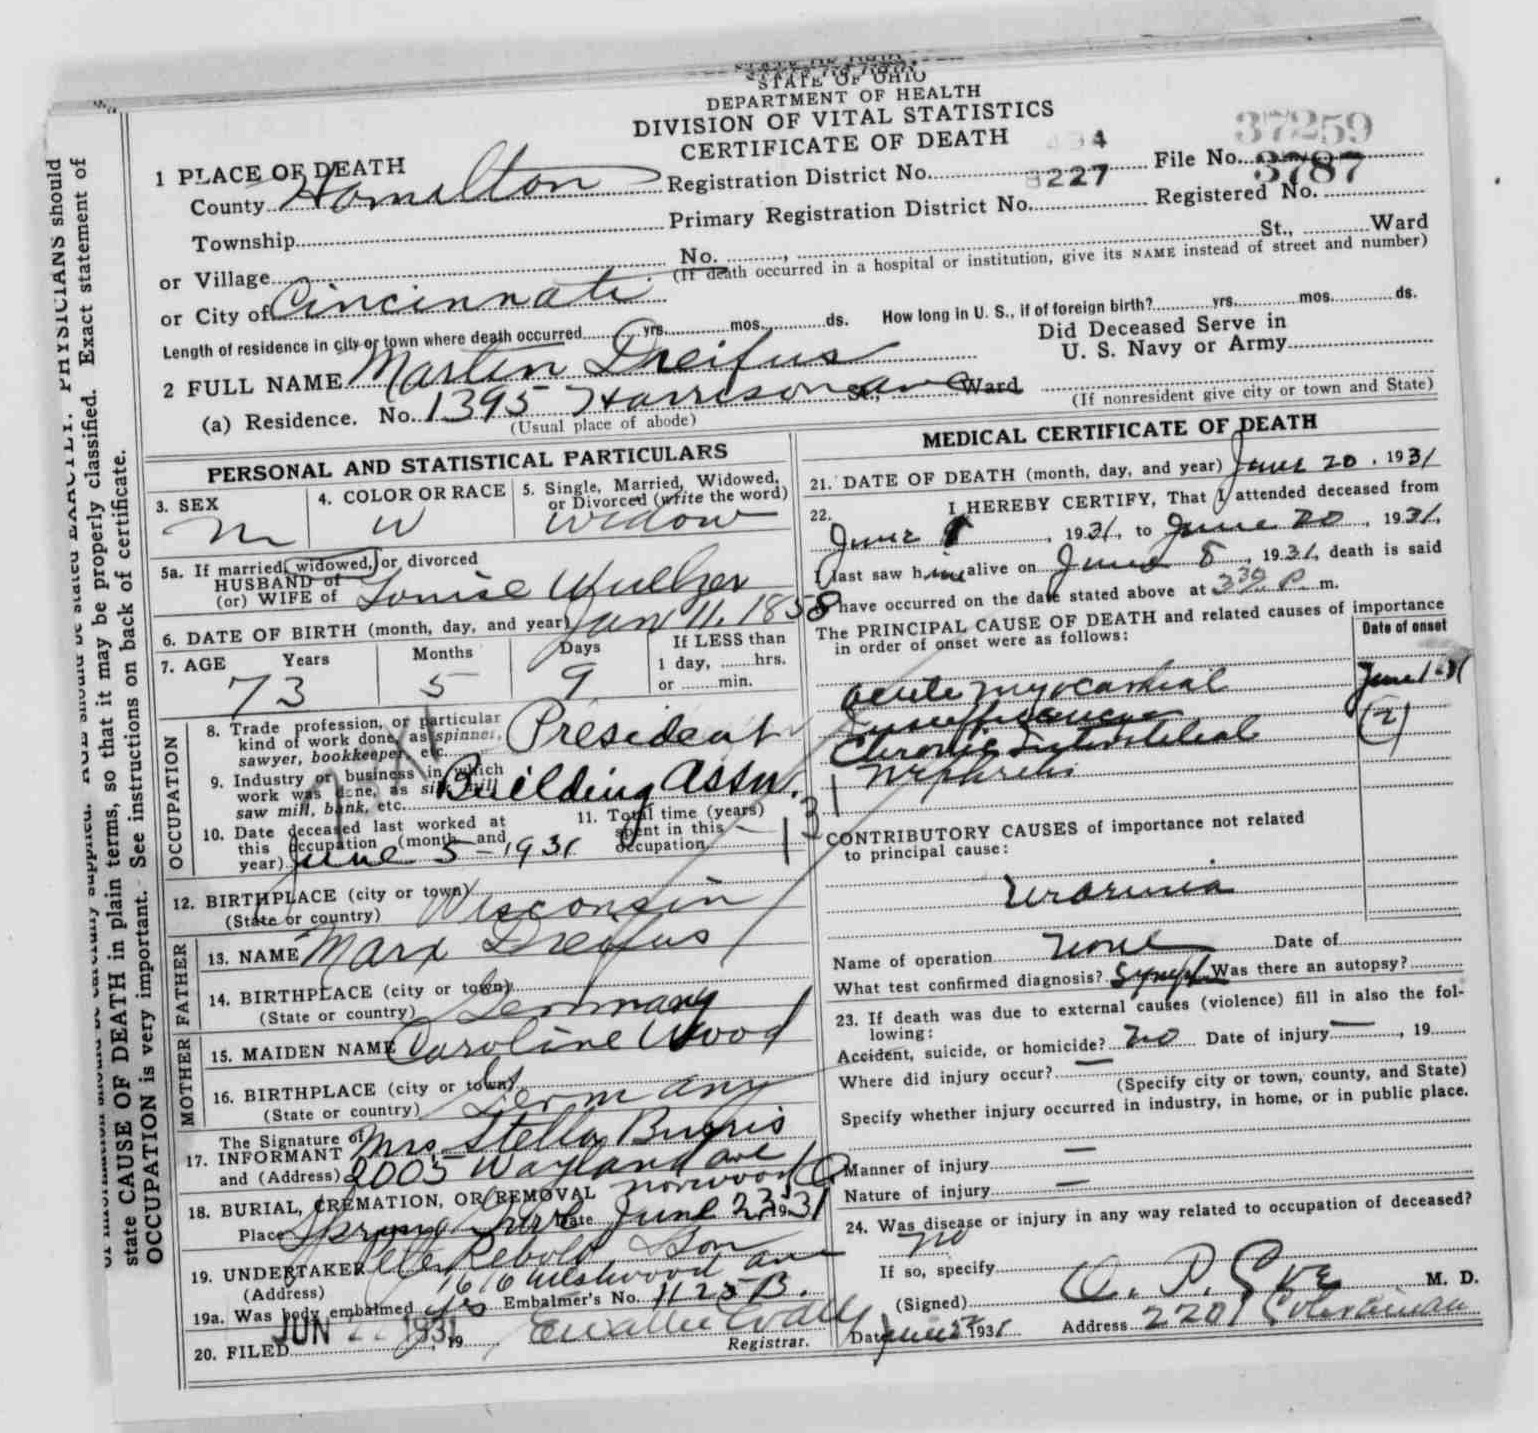 STATE OF OHIO
DEPARTMENT OF HEALTH
DIVISION OF VITAL STATISTICS
CERTIFICATE OF DEATH
37259
1 PLACE OF DEATH
County Hamilton Registration District No. 494 File No.
Township Primary Registration District No. 8227 Registered No. 3787
or Village No. , St., Ward
(If death occurred in a hospital or institution, give its NAME instead of street and number)
or City of Cincinnati
Length of residence in city or town where death occurred yrs. mos. ds. How long in U. S., if of foreign birth? yrs. mos. ds.
Did Deceased Serve in
U. S. Navy or Army
2 FULL NAME Martin Dreifus
(a) Residence. No. 1395 Harrison ave St. Ward
(Usual place of abode) (If nonresident give city or town and State)
PERSONAL AND STATISTICAL PARTICULARS
3. SEX 4. COLOR OR RACE 5. Single, Married, Widowed, or Divorced (write the word)
m W Widow
5a. If married, widowed, or divorced
HUSBAND of
(or) WIFE of Louise
6. DATE OF BIRTH (month, day, and year) Jan 11, 1858
7. AGE Years Months Days If LESS than
1 day, hrs.
or min.
73 5 9
OCCUPATION
8. Trade profession, or particular
kind of work done, as spinner,
sawyer, bookkeeper, etc. President
9. Industry or business in which
work was done, as silk mill,
saw mill, bank, etc. Building Assn.
10. Date deceased last worked at
this occupation (month and
year) June 5 - 1931
11. Total time (years)
spent in this
occupation
12. BIRTHPLACE (city or town)
(State or country) Wisconsin
FATHER
13. NAME Marx Dreifus
14. BIRTHPLACE (city or town)
(State or country) Germany
MOTHER
15. MAIDEN NAME Caroline Wood
16. BIRTHPLACE (city or town)
(State or country) Germany
17. The Signature of
INFORMANT Mrs. Stella Burris
and (Address) 2005 Wayland ave
Norwood O
18. BURIAL, CREMATION, OR REMOVAL
Place Spring Grove Date June 23, 1931
19. UNDERTAKER Peter Rebold Son
(Address) 1616 Westwood av
19a. Was body embalmed yes Embalmer's No. 1125 B.
20. FILED JUN 1931, 19
Registrar.
MEDICAL CERTIFICATE OF DEATH
21. DATE OF DEATH (month, day, and year) June 20, 1931
22. I HEREBY CERTIFY, That I attended deceased from
June , 1931, to June 20, 1931,
I last saw him alive on June 8, 1931, death is said
to have occurred on the date stated above at 3 30 P. m.
The PRINCIPAL CAUSE OF DEATH and related causes of importance
in order of onset were as follows:
Date of onset
acute myocardial June 1-31
Insufficiency
Chronic Interstitial (2)
Nephritis
131
CONTRIBUTORY CAUSES of importance not related
to principal cause:
Uraemia
Name of operation none Date of
What test confirmed diagnosis? Was there an autopsy?
23. If death was due to external causes (violence) fill in also the fol-
lowing:
Accident, suicide, or homicide? no Date of injury — , 19
Where did injury occur? —
(Specify city or town, county, and State)
Specify whether injury occurred in industry, in home, or in public place.
Manner of injury —
Nature of injury —
24. Was disease or injury in any way related to occupation of deceased?
no
If so, specify
(Signed) M. D.
Date June 22 1931 Address 2201
PHYSICIANS should
Exact statement of
state CAUSE OF DEATH in plain terms, so that it may be properly classified.
OCCUPATION is very important. See instructions on back of certificate.